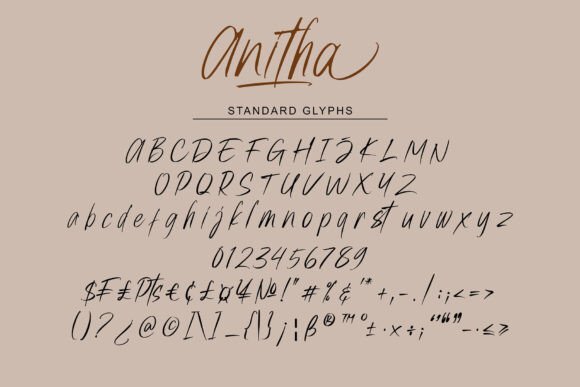 anitha
STANDARD GLYPHS
ABCDEFGHIJKLMN
OPQRSTUVWXYZ
abcdefghijklmnopqrstuvwxyz
0123456789
$₣₤₧€¢£¤¥№!"#%&'*+,-./:;<=>
()?¿@©[\]_{|}¡¦ß®™º±·×÷¡“‘”’-·≤≥